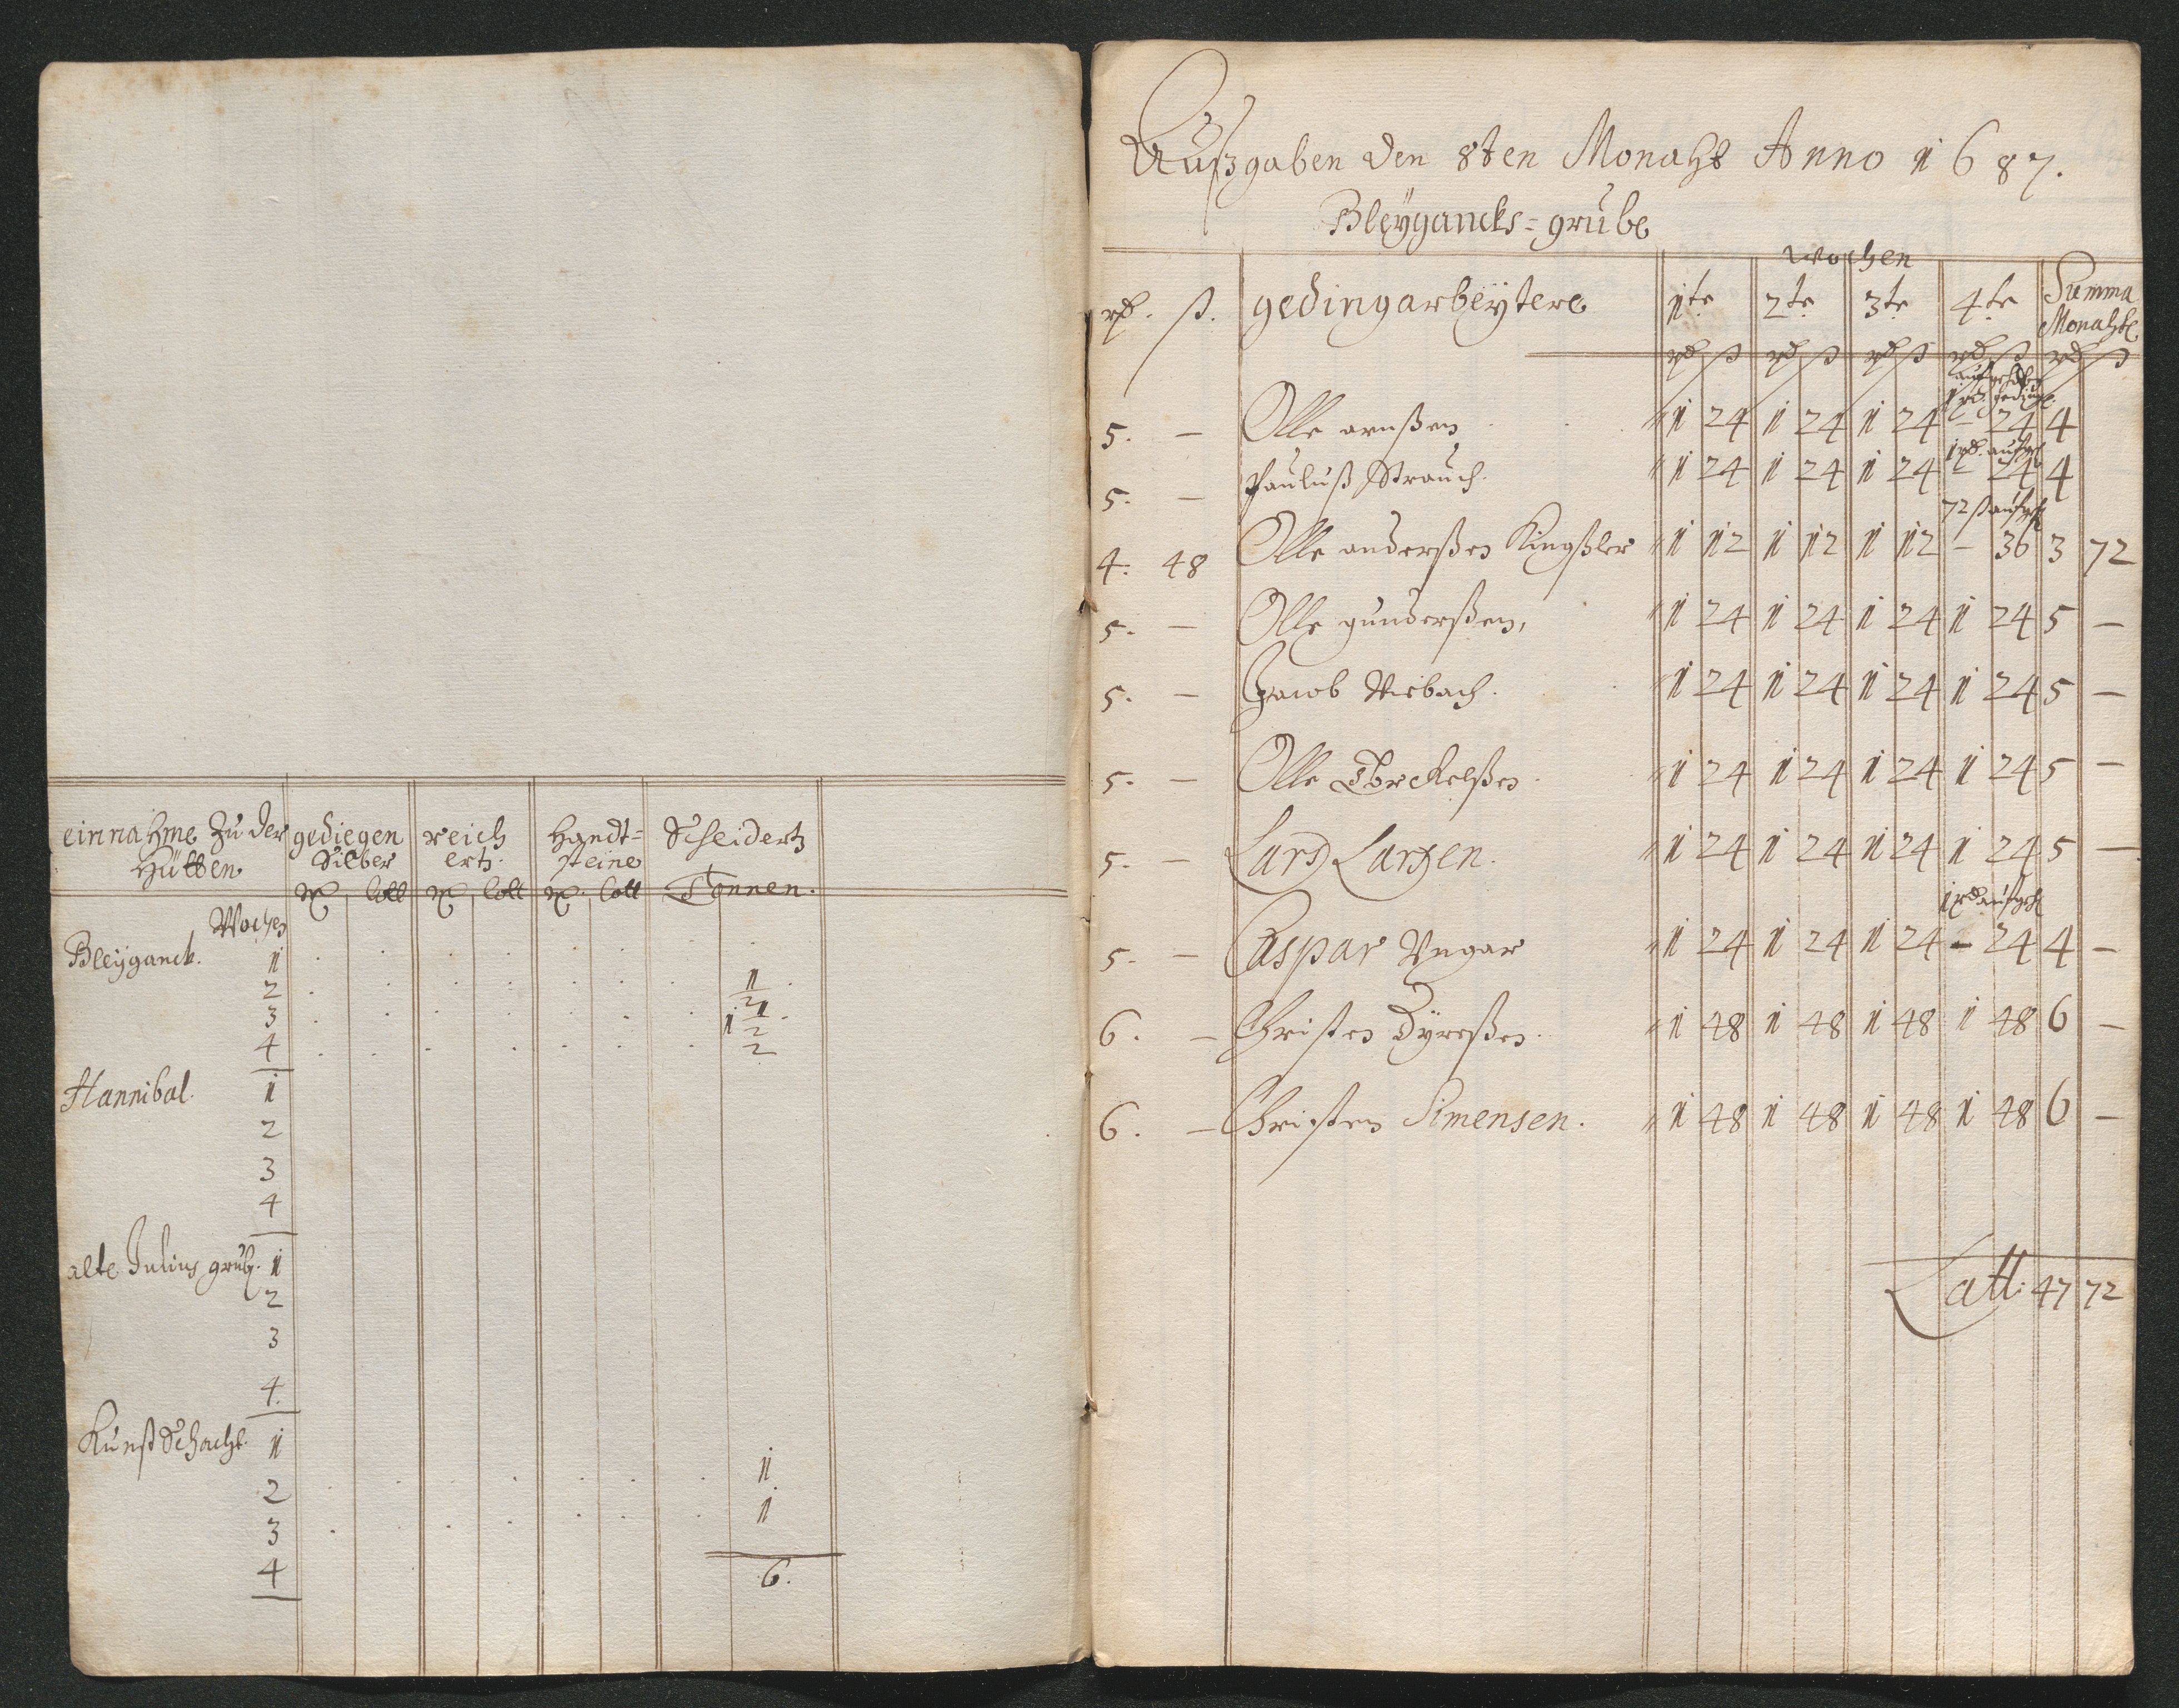 einnahme Zu der gediegen reich Handt= Scheidertz
Hütten Silber ertz. steine
Mk lott Mk lott Mk lott Tonnen.
Wochen
Bleÿganck. 1 . . . . . . . .
2 . . . . . . . 1/2 .
3 . . . . . . . 1 1/2 .
4 . . . . . . . 2
Hannibal. 1
2
3
4
alte Julius grub. 1
2
3
4.
Kunst Schacht. 1
2 . . . . . . . 1
3 . . . . . . . 1
4 6.
Außgaben den 8ten Monaht Anno 1687.
Bleÿgancks=grube
wochen
rd. ß. gedingarbeÿtere 1te 2te 3te 4te Summa
Monahtl
rd ß rd ß rd ß rd ß rd ß
1 rd. geding.
5. — Olle arnßen 1 24 1 24 1 24 – 24 4
1 rd. aufgeh
5. — Pauluß Strauch. 1 24 1 24 1 24 – 24 4
72 ß aufgeh
4. 48 Olle anderßen Kingßler 1 12 1 12 1 12 – 36 3 72
5. — Olle gunderßen, 1 24 1 24 1 24 1 24 5 —
5. — Jacob Viebach. 1 24 1 24 1 24 1 24 5 —
5. — Olle Torckelßen. 1 24 1 24 1 24 1 24 5 —
5. — Lars Larsen. 1 24 1 24 1 24 1 24 5 —
1 rd aufgeh
5. — Caspar Ungar 1 24 1 24 1 24 – 24 4 —
6. — Christen Dÿreßen. 1 48 1 48 1 48 1 48 6 —
6. — Christen Simensen. 1 48 1 48 1 48 1 48 6 —
Latt: 47 72